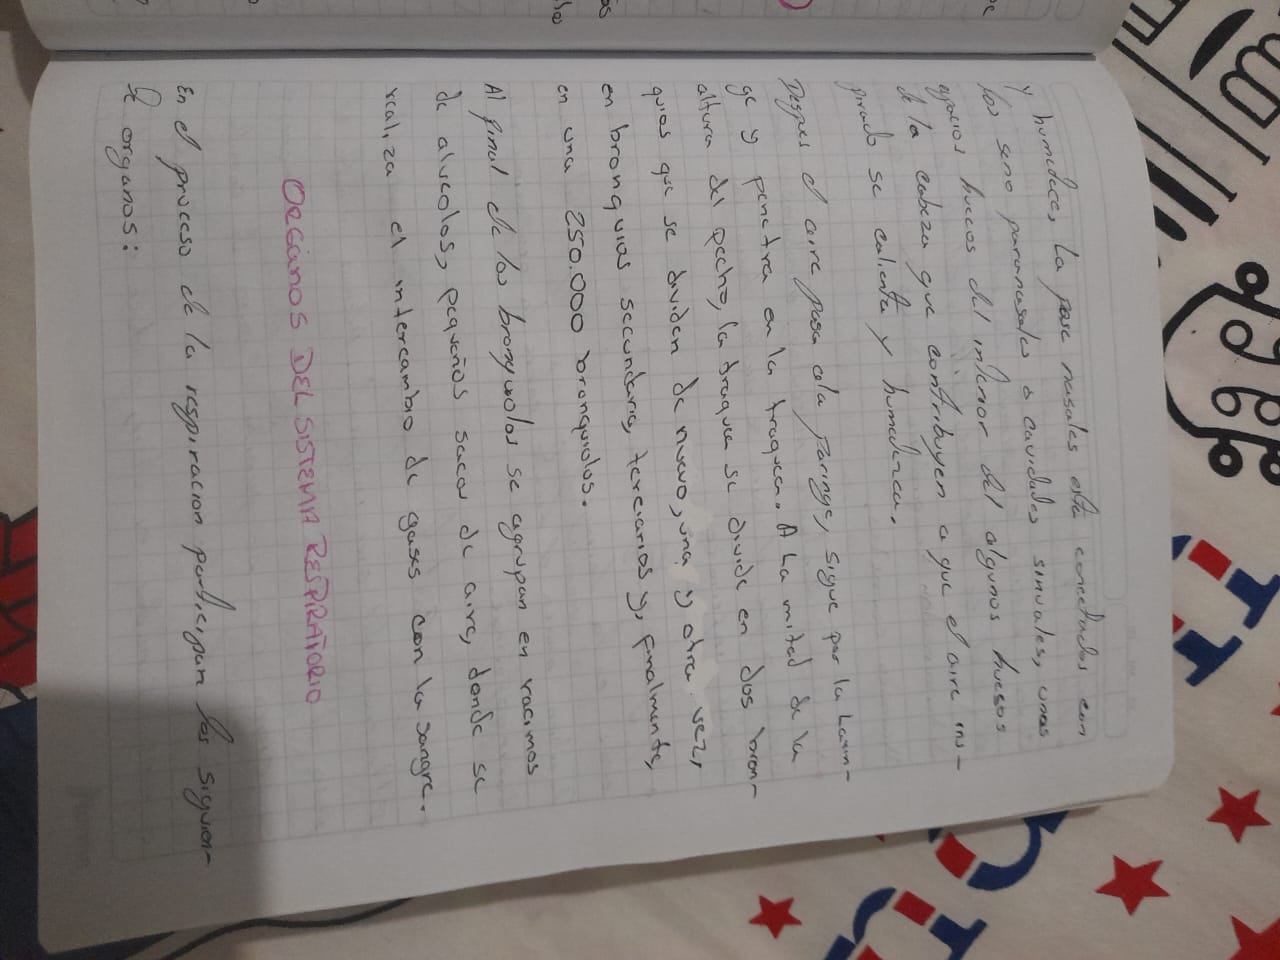 y humedece, La fose nasales esta conectadas con
los seno paranasales o cavidades sinuales, unos
espacios huecos del interior del algunos huesos
de la cabeza que contribuyen a que el aire ins-
pirado se caliente y humedezca.
Despues el aire pasa a la faringe, sigue por la Larin-
ge y penetra en la traquea. A La mitad de la
altura del pecho, la traquea se divide en dos bron-
quios que se dividen de nuevo, una y otra vez,
en bronquios secundario, terciarios y, finalmente,
en una 250.000 bronquiolos.
Al final de los bronquiolos se agrupan en racimos
de alveolos, pequeños sacos de aire, donde se
realiza el intercambio de gases con la sangre.
ORGANOS DEL SISTEMA RESPIRATORIO
En el proceso de la respiracion participan los siguien-
te organos: